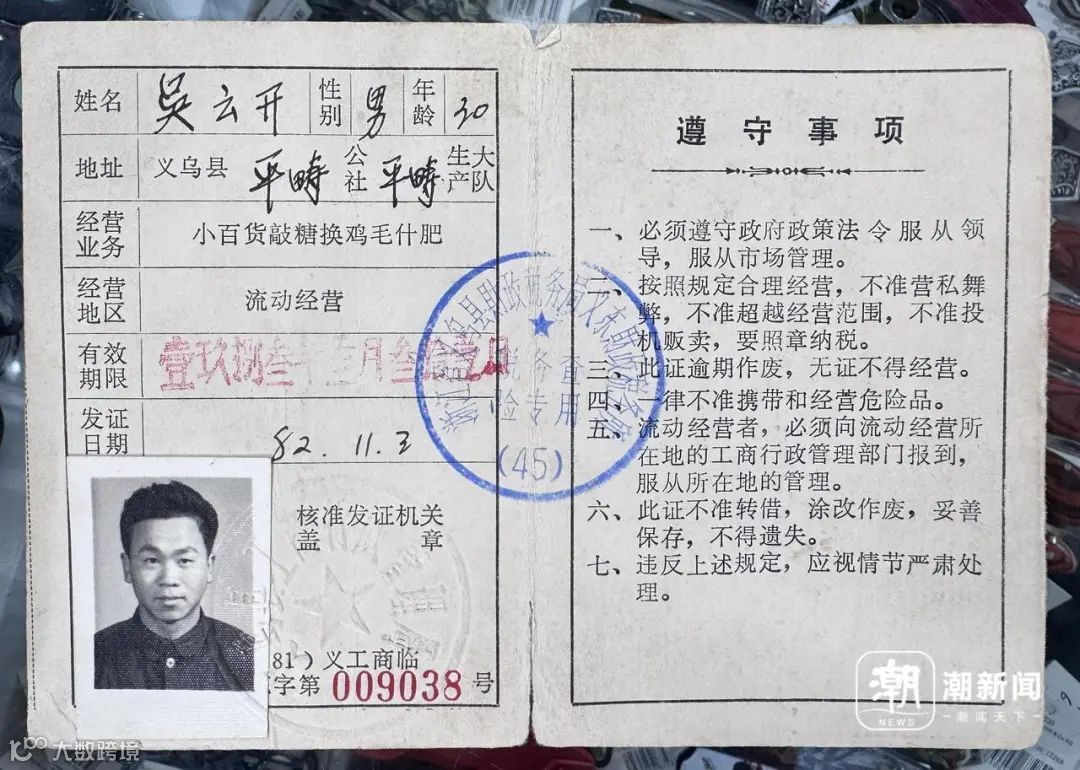 姓名 吴云开 性别 男 年龄 30
地址 义乌县 平畴 公社 平畴 生产大队
经营业务 小百货敲糖换鸡毛什肥
经营地区 流动经营
有效期限 壹玖捌叁年
发证日期 82.11.3
核准发证机关
盖 章
81）义工商临
字第 009038 号
税务查
验专用
(45)
遵守事项
一、必须遵守政府政策法令服从领
导，服从市场管理。
二、按照规定合理经营，不准营私舞
弊，不准超越经营范围，不准投
机贩卖，要照章纳税。
三、此证逾期作废，无证不得经营。
四、一律不准携带和经营危险品。
五、流动经营者，必须向流动经营所
在地的工商行政管理部门报到，
服从所在地的管理。
六、此证不准转借，涂改作废，妥善
保存，不得遗失。
七、违反上述规定，应视情节严肃处
理。
潮 NEWS 潮新闻
潮闻天下
大数跨境